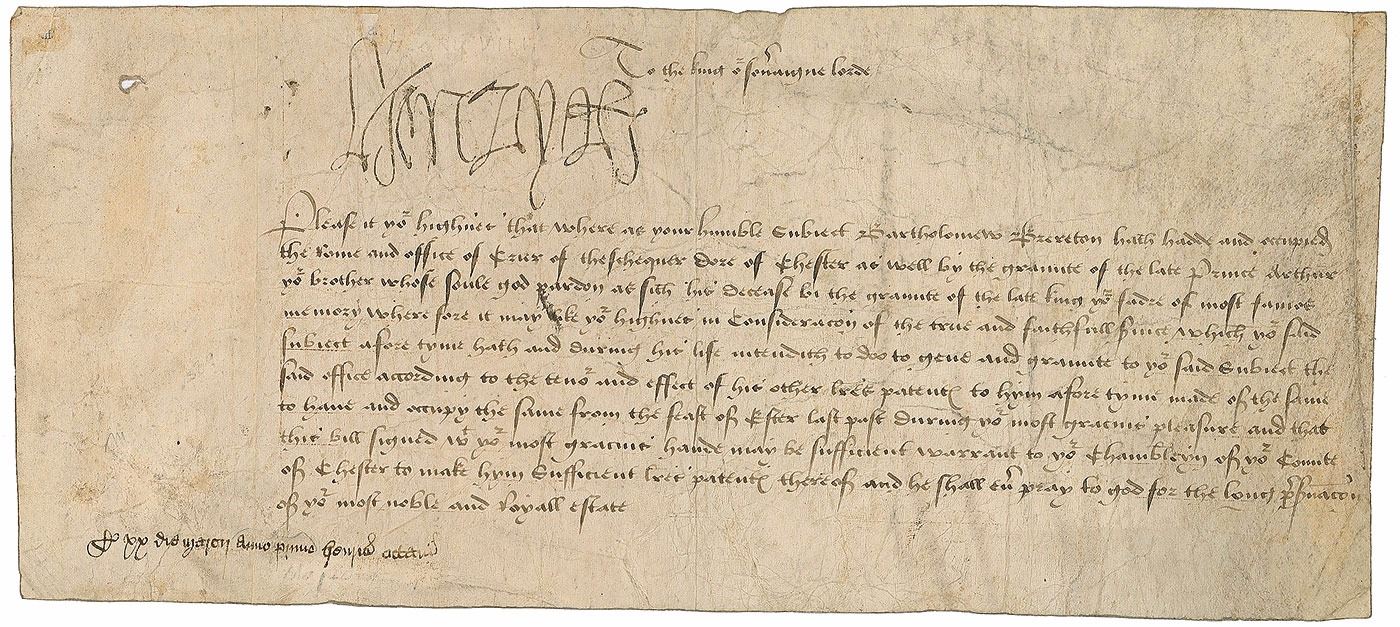 To the king or sov'aigne lorde
Henry R
Please it yor highnes that where as your humble Subiect Bartholomew Brereton hath hadde and occupied
the Rome and office of Crier of theschequer dore of Chester as well by the graunte of the late Prince Arthur
yor brother whose soule god pardon as sith his decease bi the graunte of the late king yor fadre of most famos
memory where fore it may like yor highnes in Consideracon of the true and faithfull s'uice which yor said
subiect afore tyme hath and during his life intendith to doo to geue and graunte to yor said Subiect the
said office according to the tenor and effect of his other lres patent to hym afore tyme made of the same
to haue and occupy the same from the feast of Ester last past during yor most gracius pleasure and that
this bill signed wt yor most gracius hande may be sufficient warrant to yor Chambleyn of yor Countie
of Chester to make hym Sufficient lres patent thereof and he shall eu' pray to god for the long
of yor most noble and Royall estate
xx die anno primo Henrici octaui